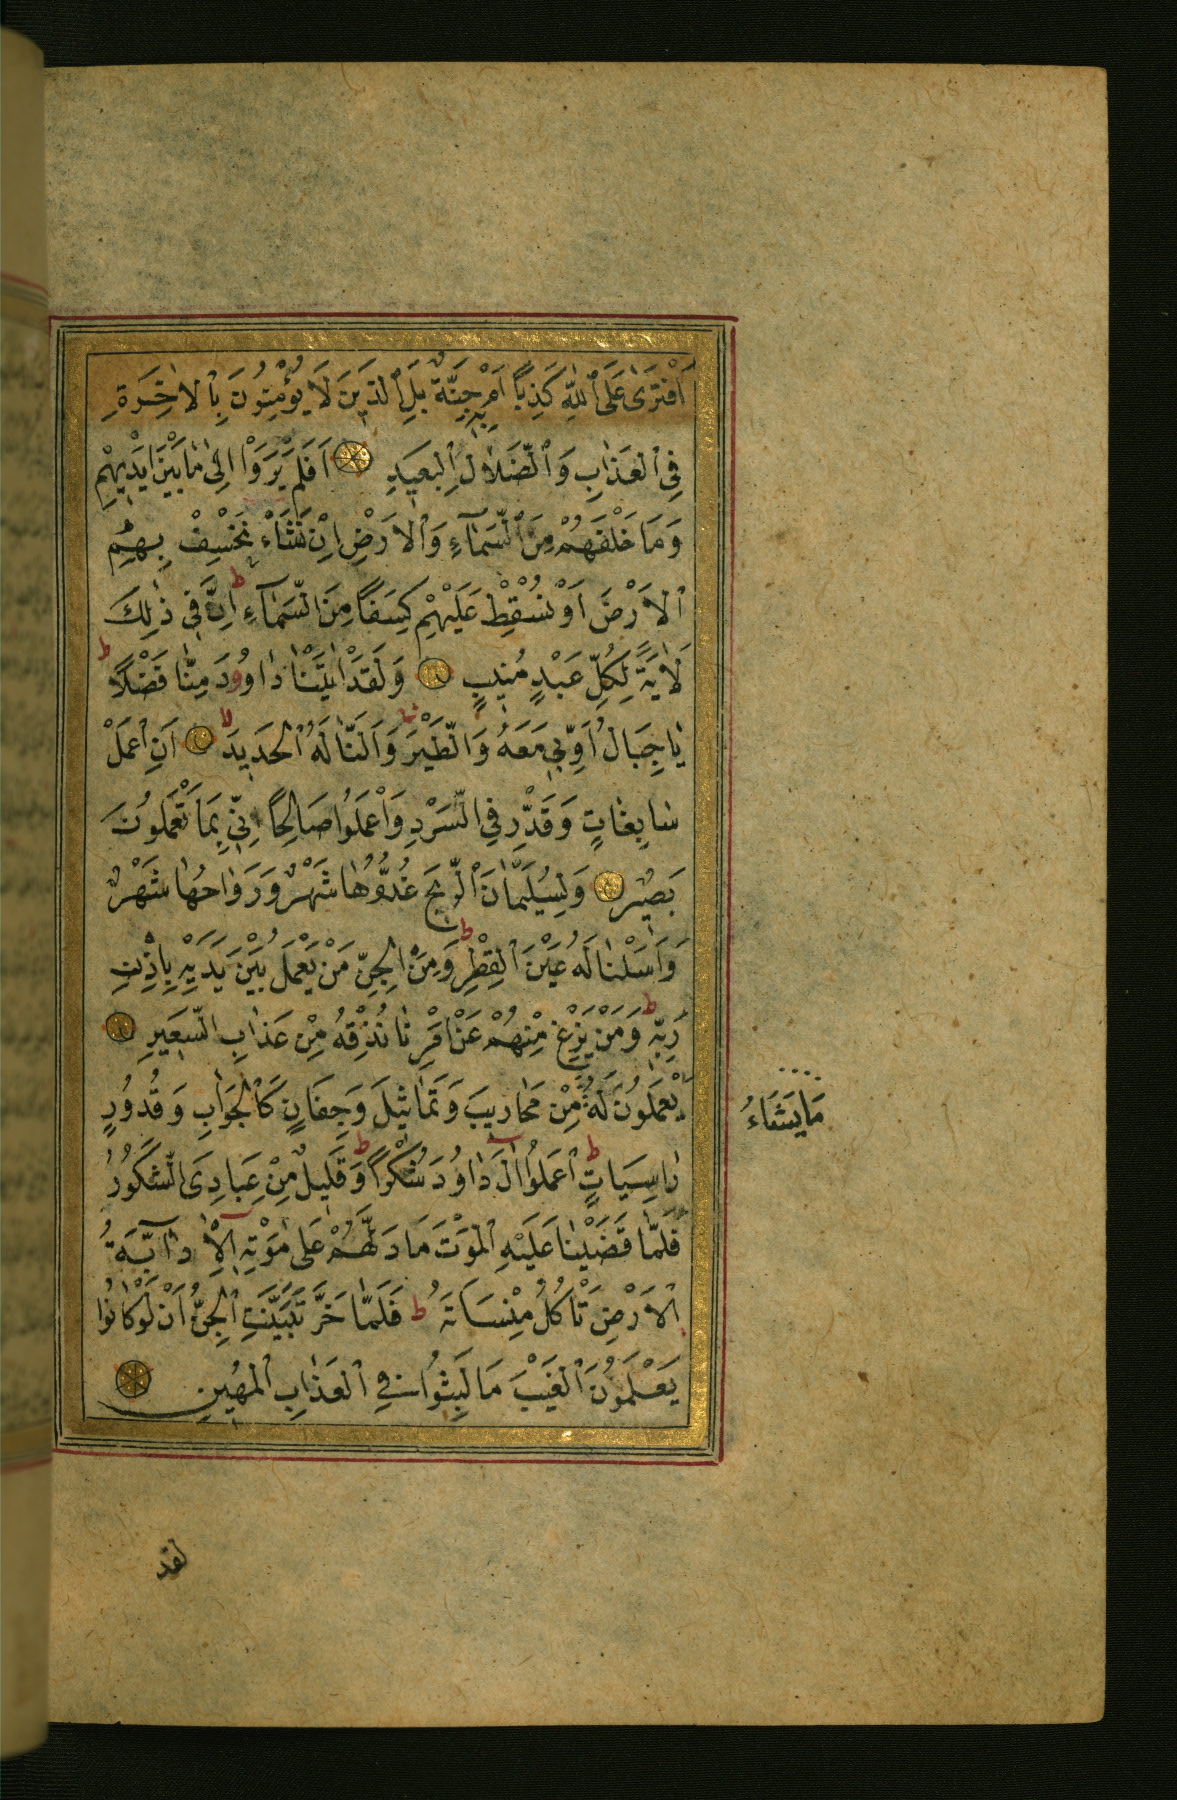 اَفْتَرٰى عَلَى ٱللّٰهِ كَذِبًا اَمْ بِهٖ جِنَّةٌ بَلِ ٱلَّذٖينَ لَا يُؤْمِنُونَ بِٱلْاٰخِرَةِ
فِى ٱلْعَذَابِ وَٱلضَّلَالِ ٱلْبَعٖيدِ اَفَلَمْ يَرَوْا اِلٰى مَا بَيْنَ اَيْدٖيهِمْ
وَمَا خَلْفَهُمْ مِنَ ٱلسَّمَآءِ وَٱلْاَرْضِ اِنْ نَشَأْ نَخْسِفْ بِهِمُ
ٱلْاَرْضَ اَوْ نُسْقِطْ عَلَيْهِمْ كِسَفًا مِنَ السَّمَآءِ ط اِنَّ فٖى ذٰلِكَ
لَاٰيَةً لِكُلِّ عَبْدٍ مُنٖيبٍ وَلَقَدْ اٰتَيْنَا دَاوُودَ مِنَّا فَضْلًا ط
يَا جِبَالُ اَوِّبٖى مَعَهُ وَالطَّيْرَ وَاَلَنَّا لَهُ ٱلْحَدٖيدَ لا اَنِ ٱعْمَلْ
سَابِغَاتٍ وَقَدِّرْ فِى السَّرْدِ وَٱعْمَلُوا صَالِحًا اِنّٖى بِمَا تَعْمَلُونَ
بَصٖيرٌ وَلِسُلَيْمَانَ ٱلرّٖيحَ غُدُوُّهَا شَهْرٌ وَرَوَاحُهَا شَهْرٌ
وَاَسَلْنَا لَهُ عَيْنَ ٱلْقِطْرِ ط وَمِنَ ٱلْجِنِّ مَنْ يَعْمَلُ بَيْنَ يَدَيْهِ بِاِذْنِ
رَبِّهٖ ط وَمَنْ يَزِغْ مِنْهُمْ عَنْ اَمْرِنَا نُذِقْهُ مِنْ عَذَابِ السَّعٖيرِ
يَعْمَلُونَ لَهُ مِنْ مَحَارٖيبَ وَتَمَاثٖيلَ وَجِفَانٍ كَٱلْجَوَابِ وَقُدُورٍ
مَا يَشَاءُ
رَاسِيَاتٍ ط ٱعْمَلُوا اٰلَ دَاوُدَ شُكْرًا ط وَقَلٖيلٌ مِنْ عِبَادِىَ الشَّكُورُ
فَلَمَّا قَضَيْنَا عَلَيْهِ ٱلْمَوْتَ مَا دَلَّهُمْ عَلٰى مَوْتِهٖ اِلَّا دَآبَّةُ
ٱلْاَرْضِ تَأْكُلُ مِنْسَاَتَهُ ط فَلَمَّا خَرَّ تَبَيَّنَتِ ٱلْجِنُّ اَنْ لَوْ كَانُوا
يَعْلَمُونَ ٱلْغَيْبَ مَا لَبِثُوا فِى ٱلْعَذَابِ ٱلْمُهٖينِ
لقد